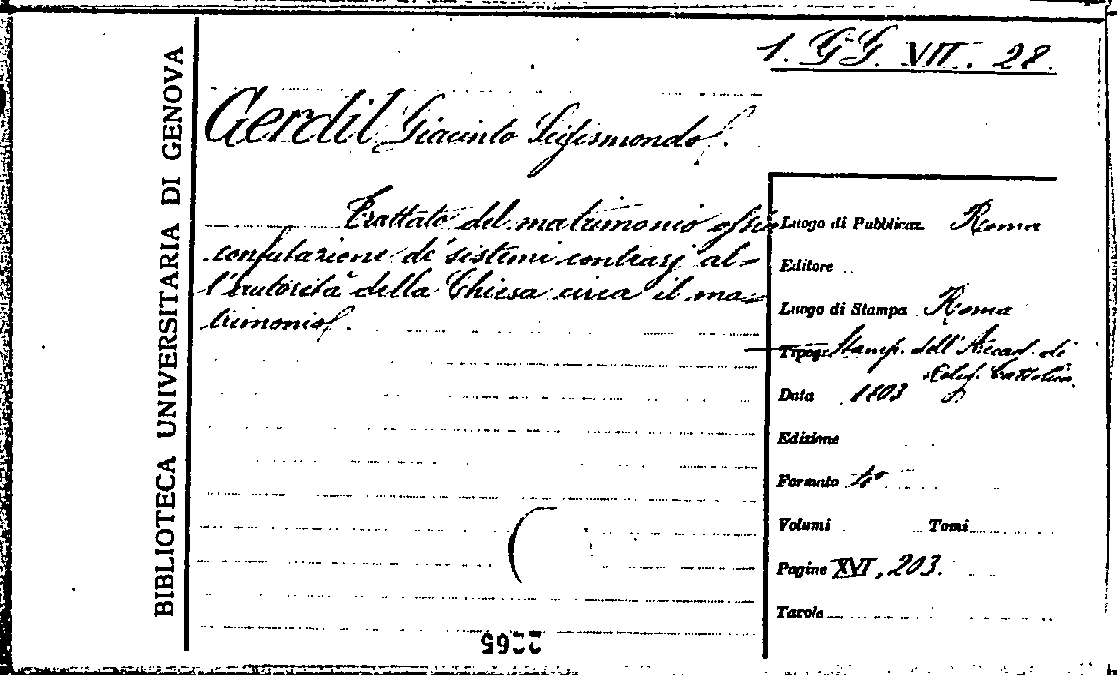 1. GG. VII. 28.
BIBLIOTECA UNIVERSITARIA DI GENOVA
Gerdil Giacinto Sigismondo.
Trattato del matrimonio ossia
confutazione de' sistemi contrarj al-
l'autorità della Chiesa circa il ma-
trimonio.
Luogo di Pubblicaz. Roma
Editore
Luogo di Stampa Roma
Tipogr. Stamp. dell'Accad. di
Relig. Cattolica.
Data 1803
Edizione
Formato 4°
Volumi Tomi
Pagine XVI, 203.
Tavole